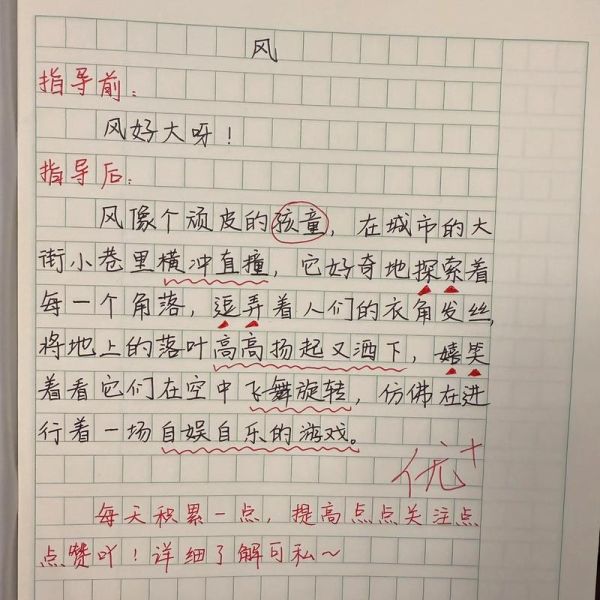 风
指导前：
风好大呀！
指导后：
风像个顽皮的孩童，在城市的大
街小巷里横冲直撞，它好奇地探索着
每一个角落，逗弄着人们的衣角发丝，
将地上的落叶高高扬起又洒下，嬉笑
着看它们在空中飞舞旋转，仿佛在进
行着一场自娱自乐的游戏。
优+
每天积累一点，提高点点关注点
点赞吖！详细了解可私～